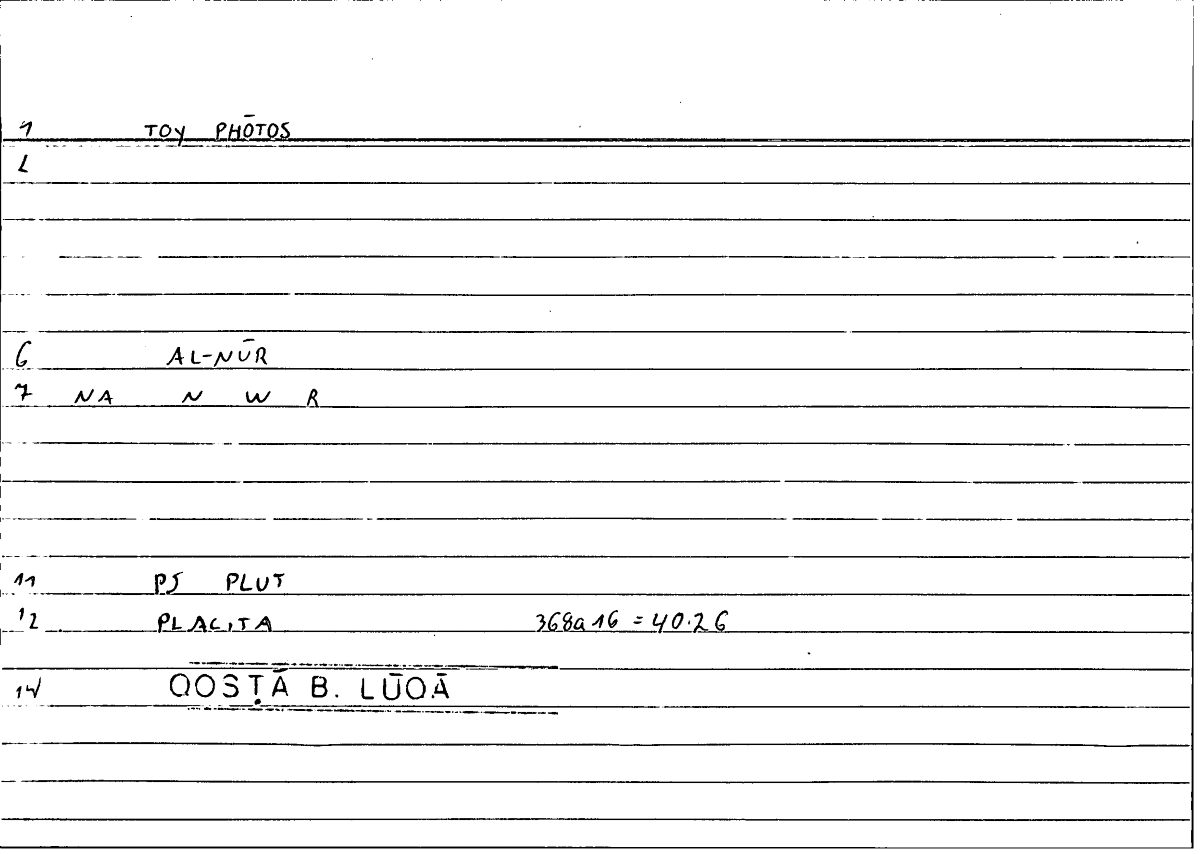 1 TOY PHŌTOS
2
6 AL-NŪR
7 NA N W R
11 PS PLUT
12 PLACITA 368a16 = 40.26
14 QOSṬĀ B. LŪQĀ